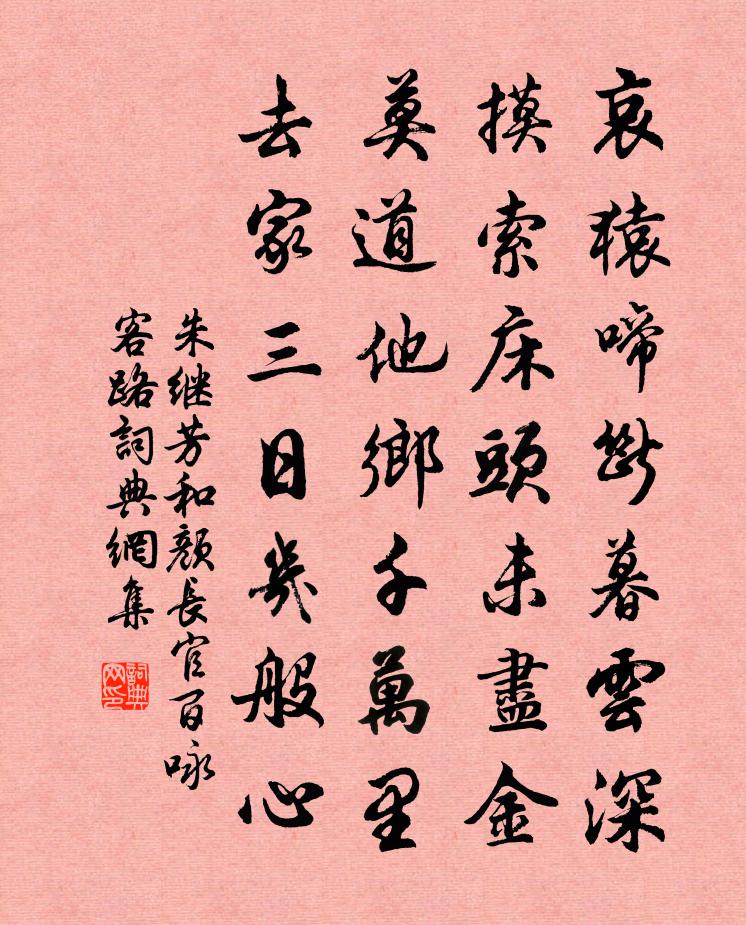 哀猿啼斷暮雲深
摸索床頭未盡金
莫道他鄉千萬里
去家三日幾般心
朱继芳和顏長官百咏
客路詞典網集
詞典網印